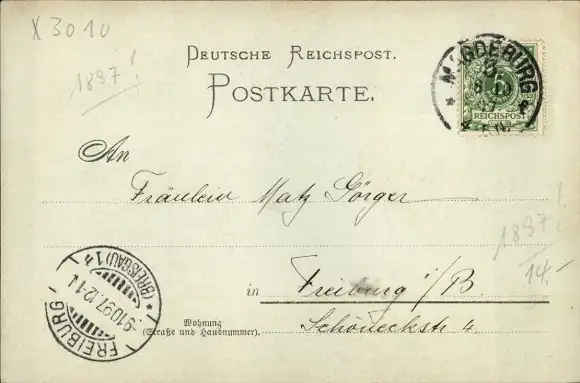 X 3010
1897!
DEUTSCHE REICHSPOST.
POSTKARTE.
MAGDEBURG
REICHSPOST
An
Fräulein Matz Görger
1897!
14.-
in Freiburg i/B
Wohnung
(Straße und Hausnummer).
Schöneckstr 4.
FREIBURG (BREISGAU) 1
-9.10.97.12-1